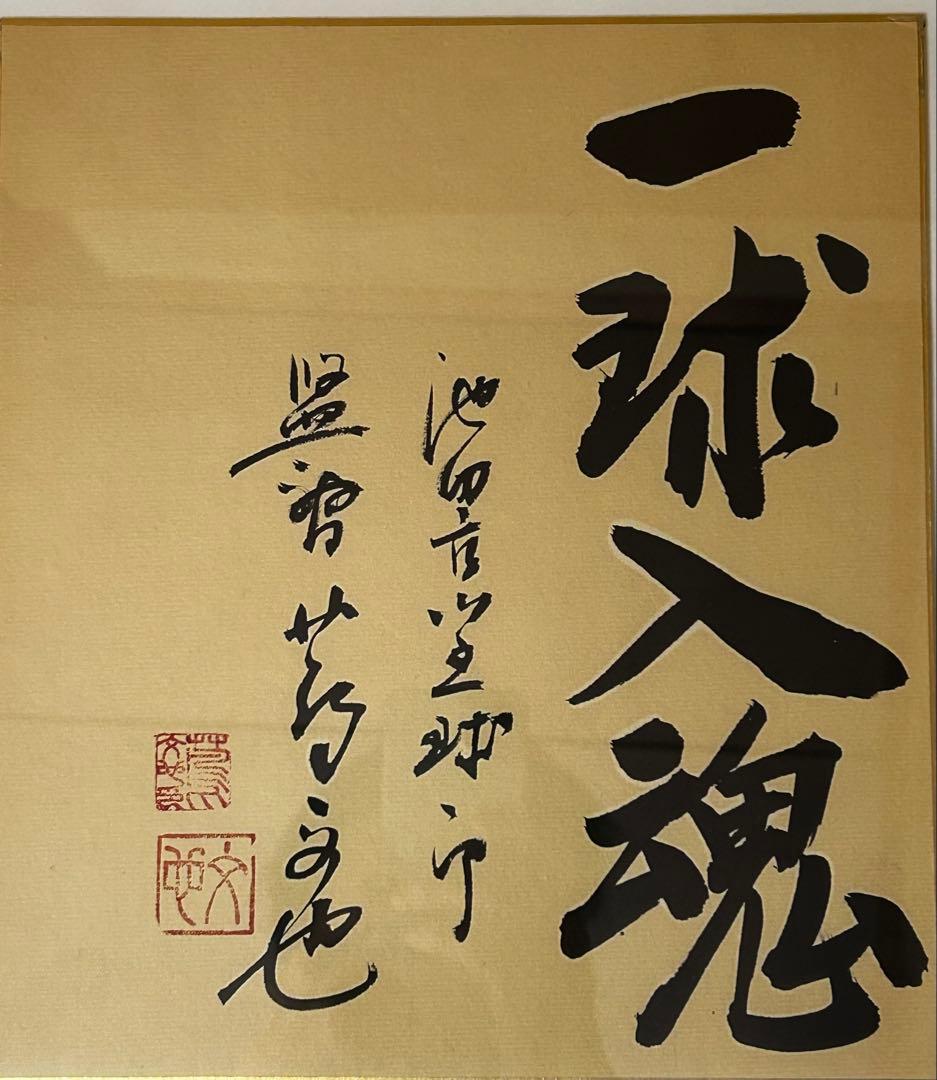 一球入魂
池田高野球部
監督 蔦文也
文也